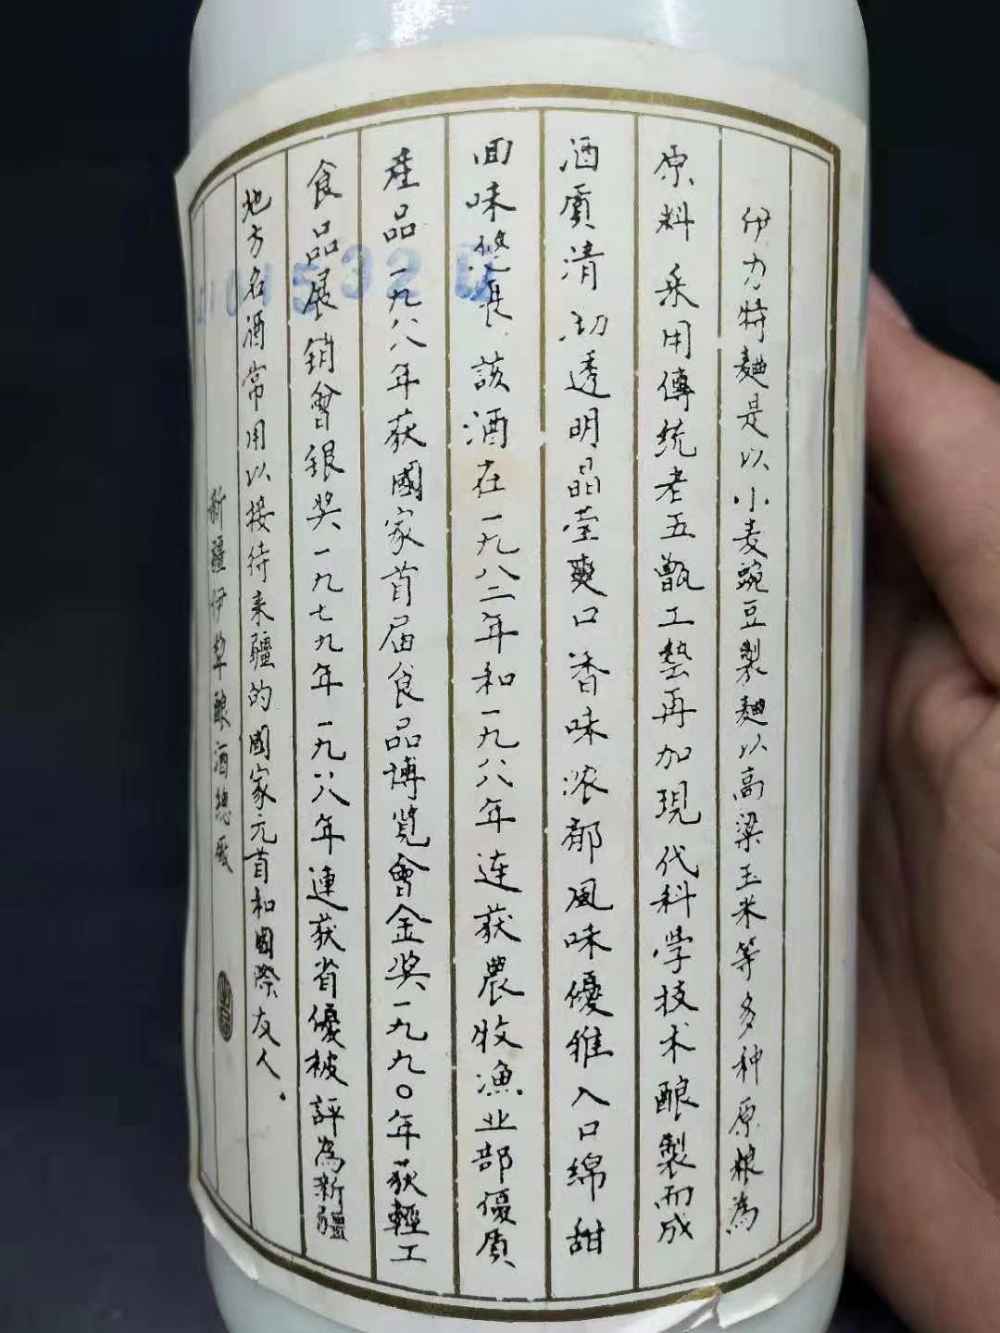 伊力特麯是以小麦豌豆製麯以高粱玉米等多种原粮為
原料采用傳统老五甑工藝再加現代科学技术酿製而成
酒質清沏透明晶莹爽口香味浓郁風味優雅入口绵甜
回味悠長.該酒在一九八二年和一九八八年连获農牧渔业部優质
産品一九八八年获國家首届食品博览會金奖一九九〇年获輕工
食品展销會银奖一九七九年一九八八年連获省優被評為新疆
地方名酒常用以接待来疆的國家元首和國際友人。
新疆伊犂酿酒總厰